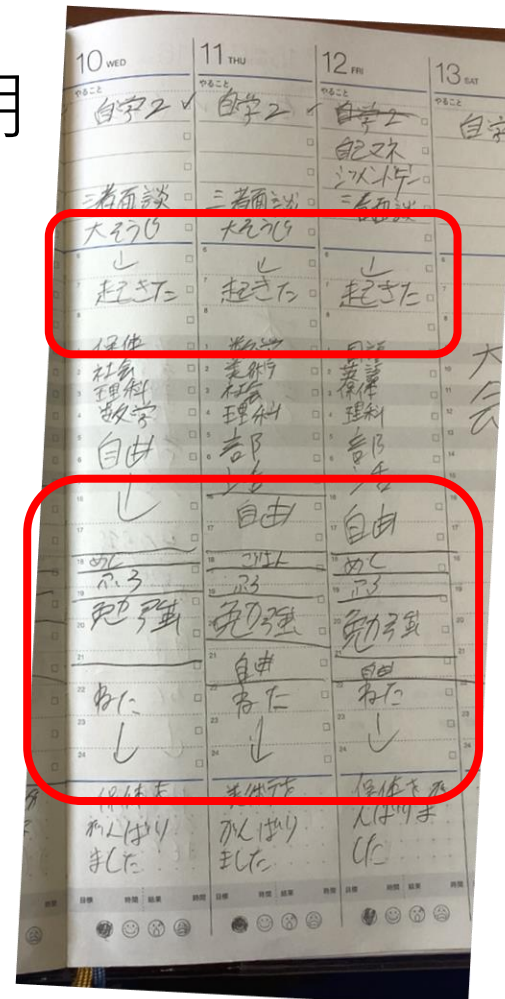 月
10 WED
やること
自学2 ✓
三者面談
大そうじ
↓
起きた
保体
社会
理科
数学
自由
↓
めし
ふろ
勉強
ねた
↓
保体を
がんばり
ました
目標 時間 結果 時間
11 THU
やること
自学2 ✓
三者面談
大そうじ
↓
起きた
数学
美術
社会
理科
部
活
自由
ごはん
ふろ
勉強
自由
ねた
↓
がんばり
ました
目標 時間 結果 時間
12 FRI
やること
自学2
自己マネ
ジメントデー
三者面談
↓
起きた
国語
英語
保体
理科
部
活
自由
めし
ふろ
勉強
自由
ねた
↓
保体をが
んばりま
した
目標 時間 結果 時間
13 SAT
やること
自学
大
会